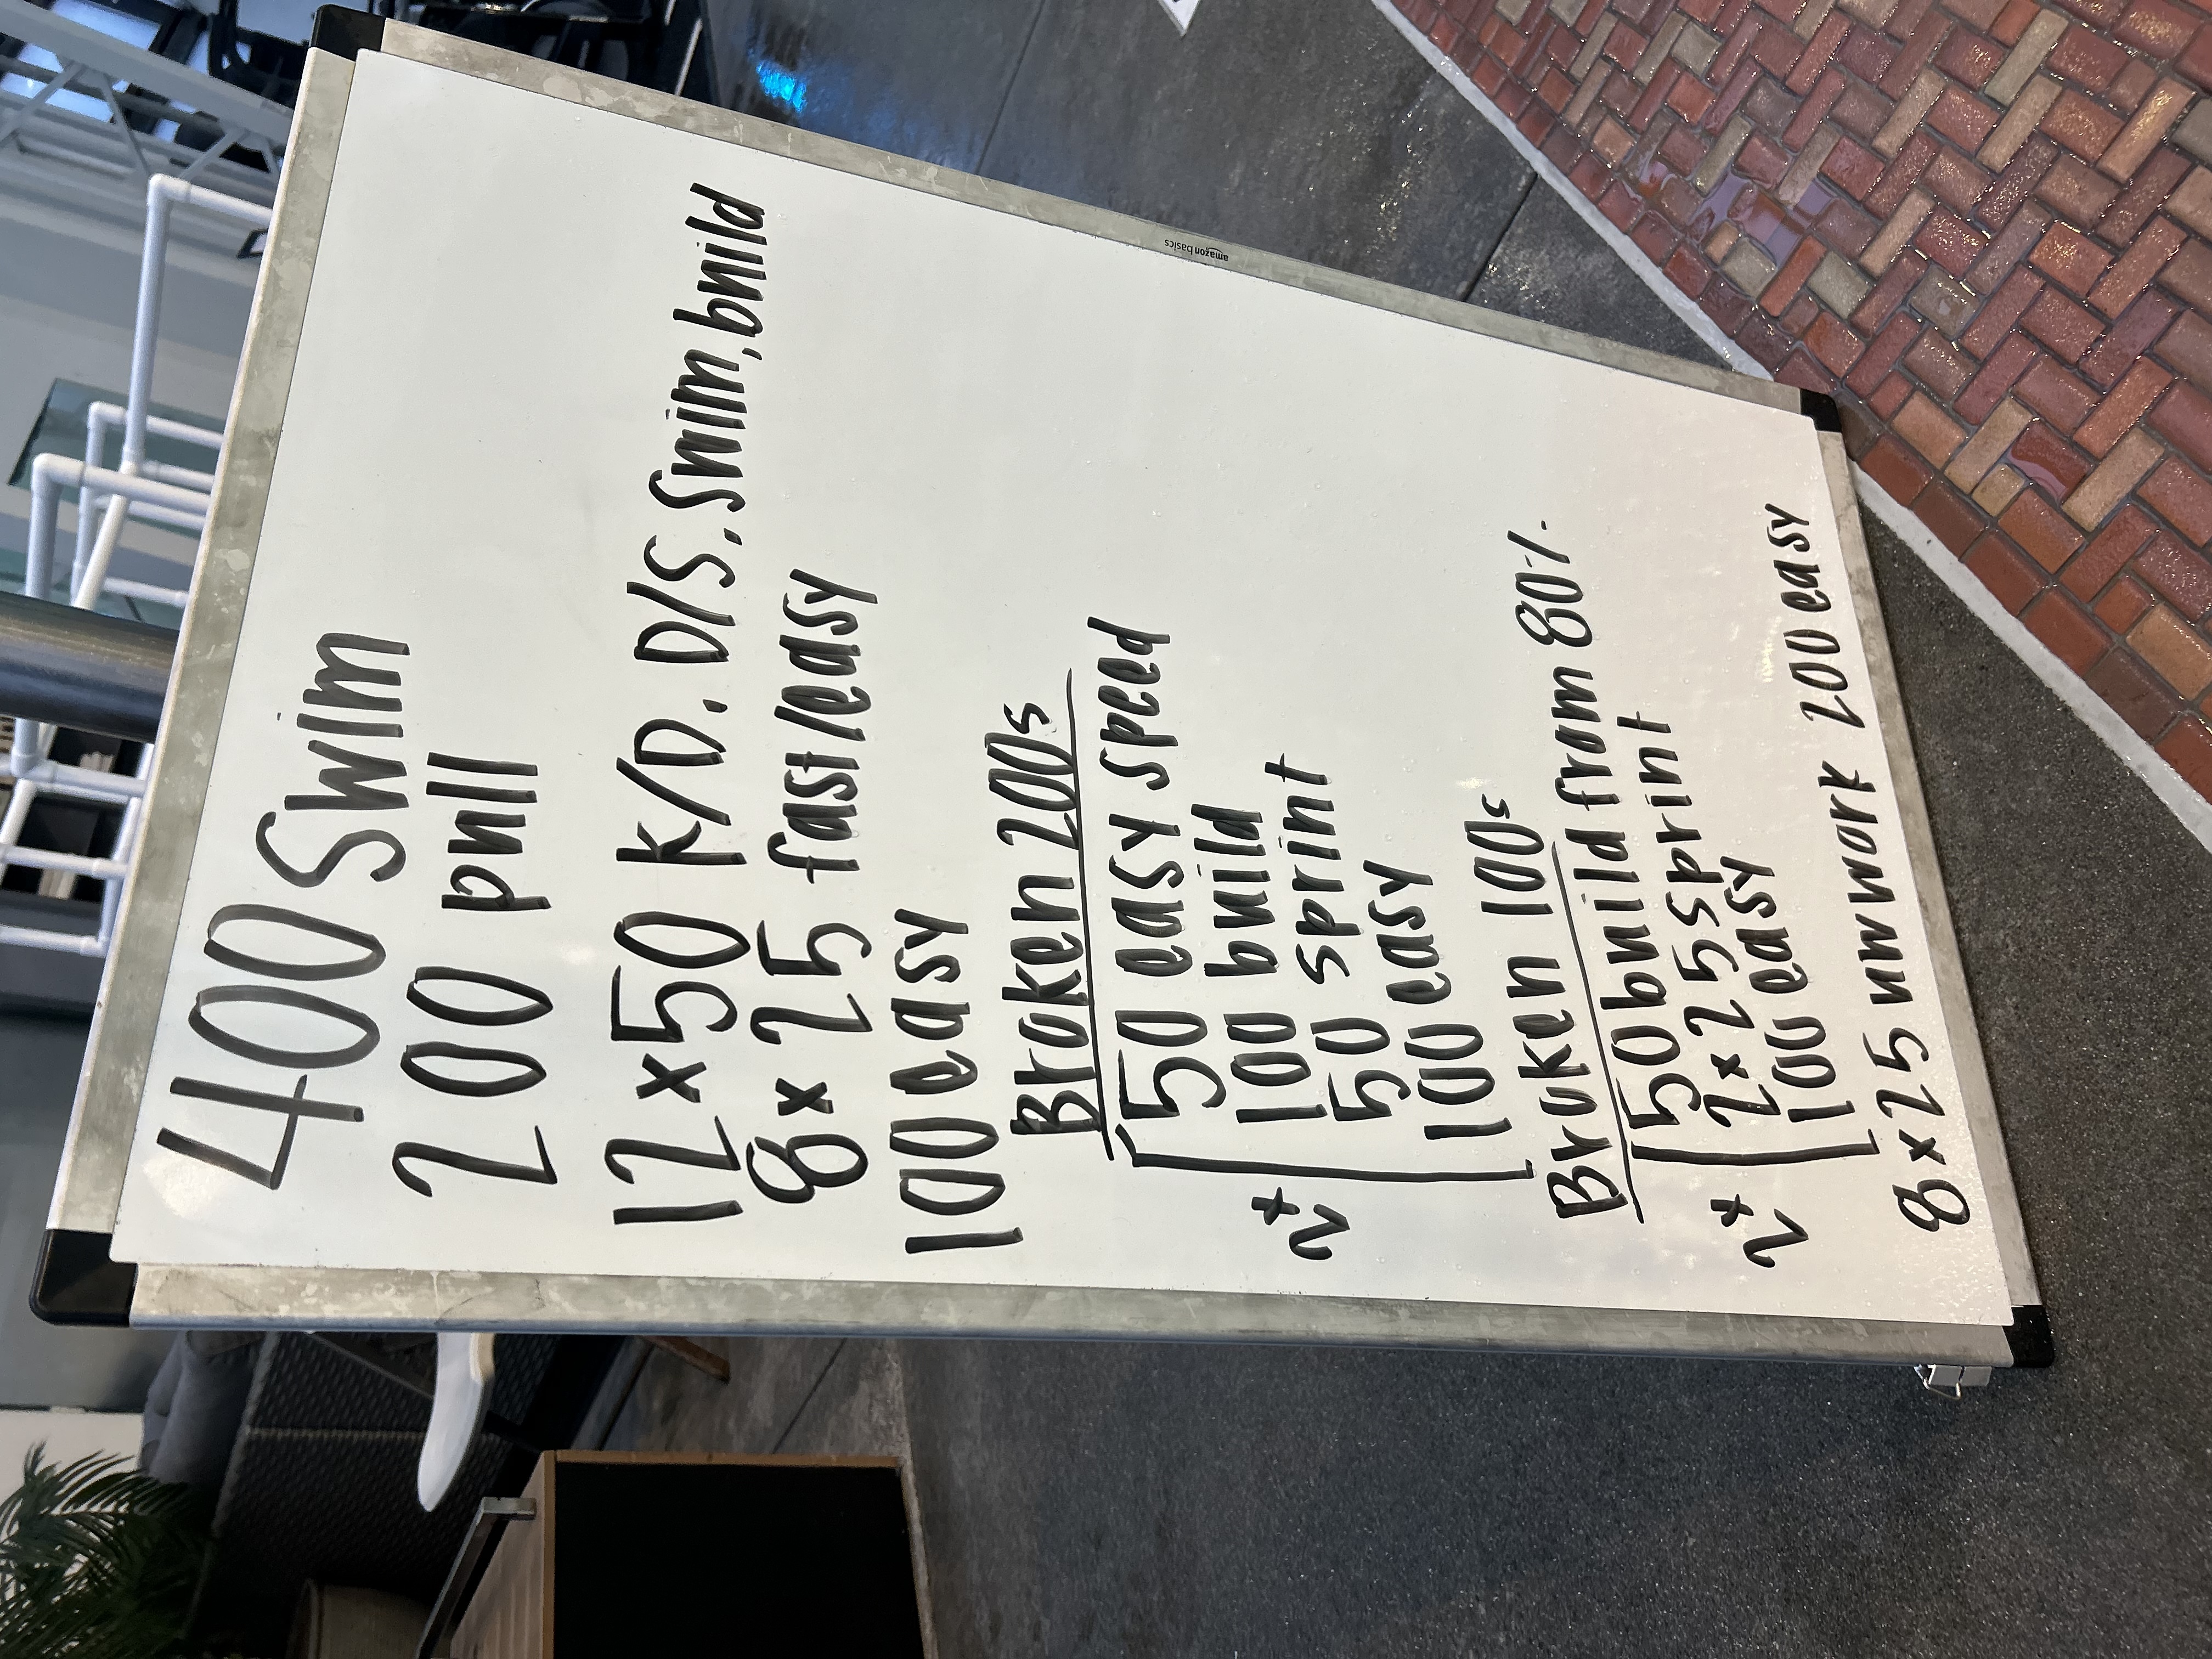 400 Swim
200 pull
12 x 50 K/D. D/S. Swim, build
8 x 25 fast/easy
100 easy
Broken 200s
50 easy speed
100 build
2x 50 sprint
100 easy
Broken 100s
50 build from 80%
2x 2x25 sprint
100 easy
8 x 25 uwwork 200 easy
amazon basics